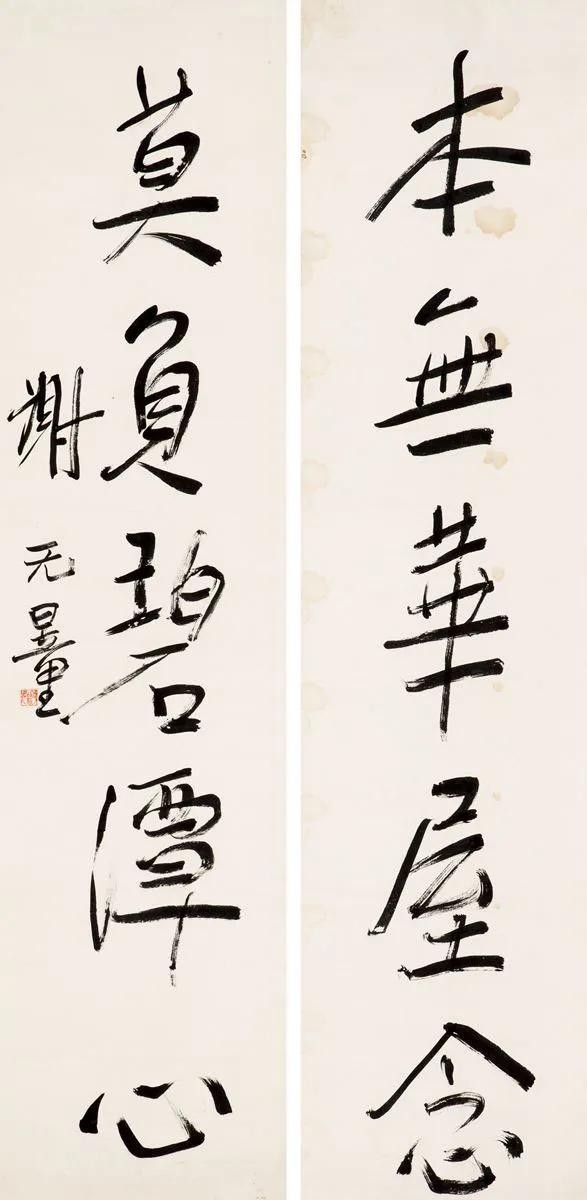 本無華屋念
莫負碧潭心
謝无量